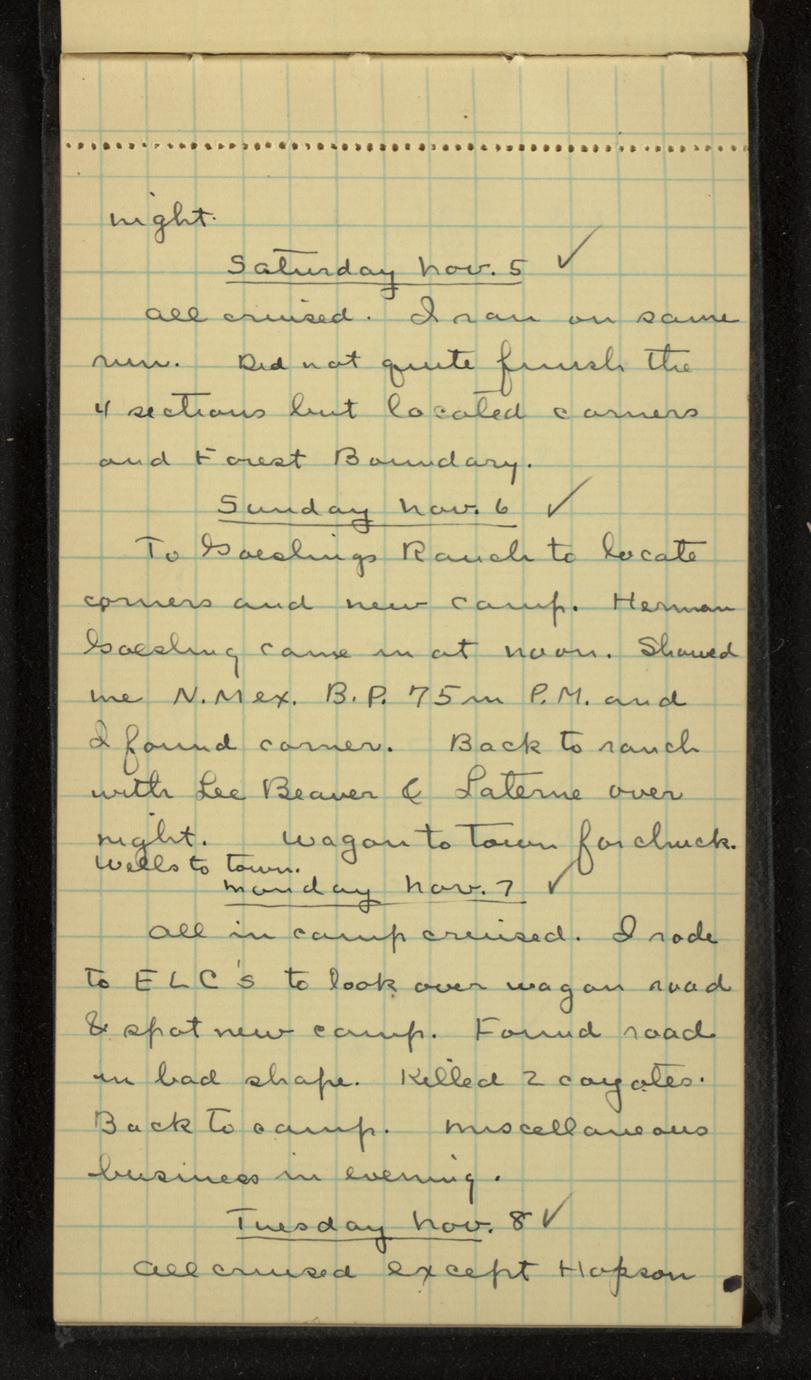 night.
Saturday Nov. 5 ✓
All cruised. I ran on same
run. Did not quite finish the
4 sections but located corners
and Forest Boundary.
Sunday Nov. 6 ✓
To Goeslings Ranch to locate
corners and new camp. Herman
Goesling came in at noon. Showed
me N. Mex. B.P. 75 m P.M. and
I found corner. Back to ranch
with Lee Beaver & Laterne over
night. Wagon to town for chuck.
Wells to town.
Monday Nov. 7 ✓
All in camp cruised. I rode
to ELC's to look over wagon road
& spot new camp. Found road
in bad shape. Killed 2 coyotes.
Back to camp. Miscellaneous
business in evening.
Tuesday Nov. 8 ✓
All cruised except Hopson